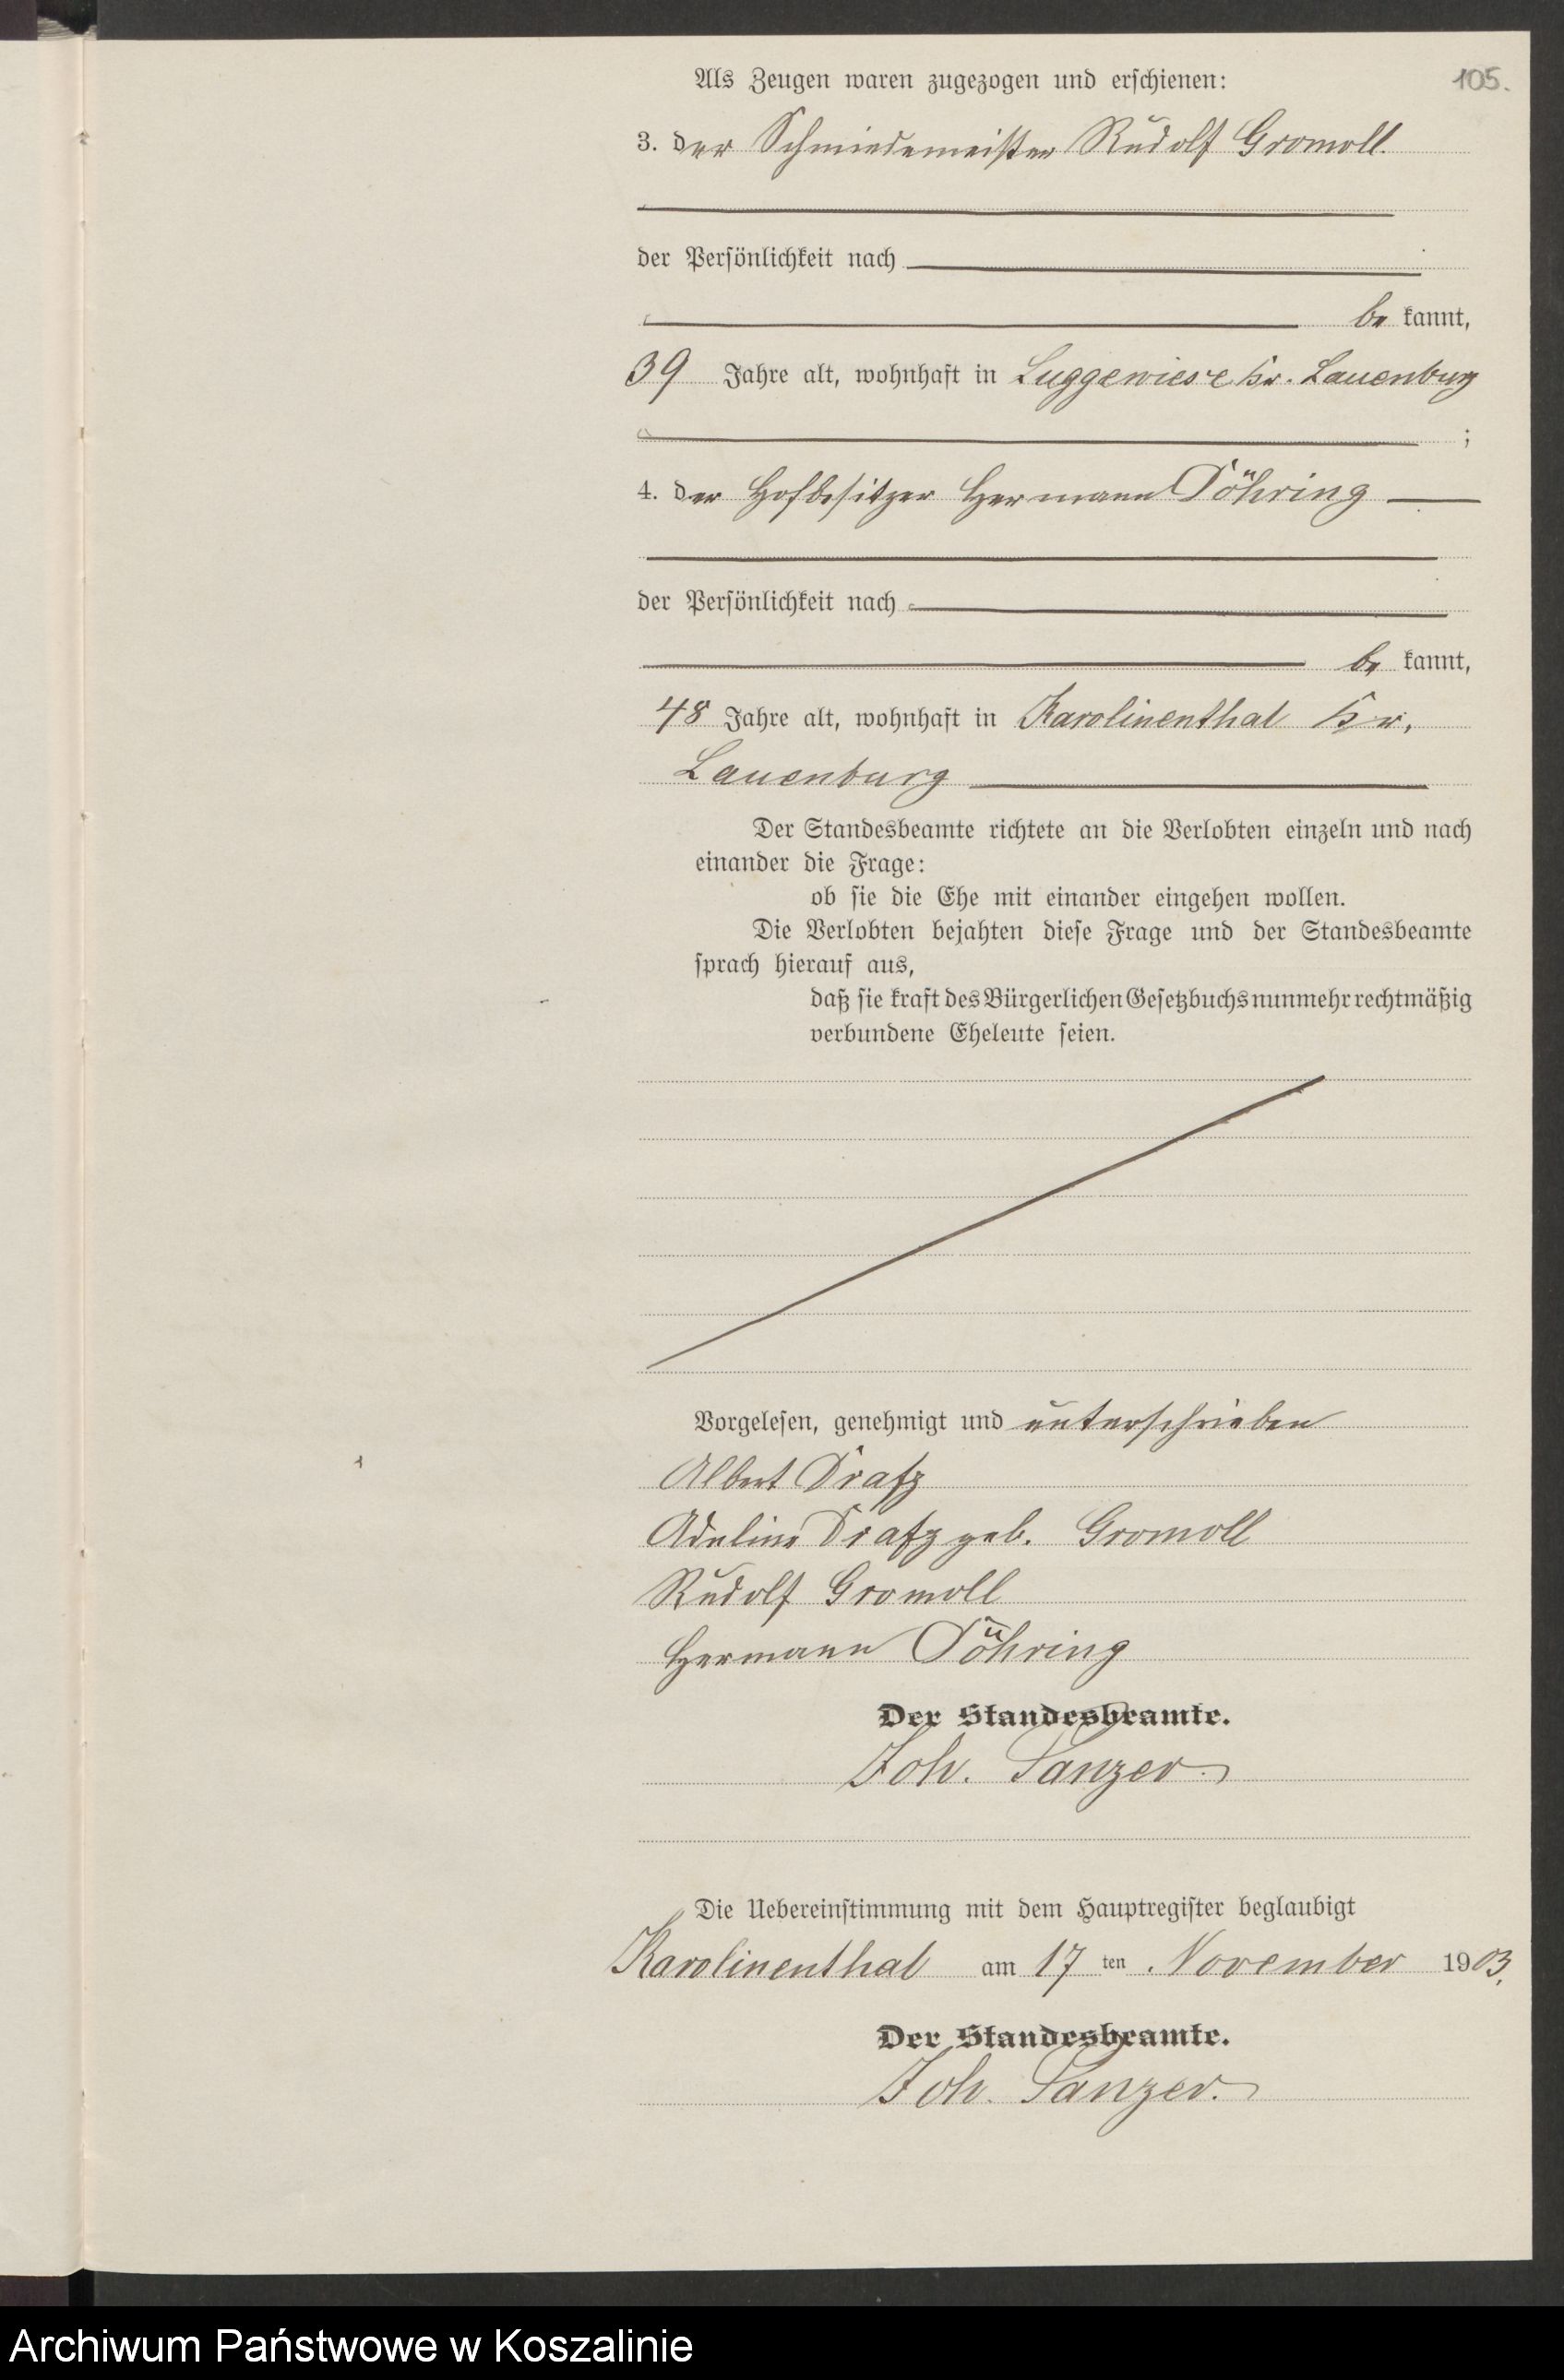 105.
Als Zeugen waren zugezogen und erschienen:
3. der Schmiedemeister Rudolf Gromoll.
der Persönlichkeit nach
be kannt,
39 Jahre alt, wohnhaft in Luggewiese Kr. Lauenburg
;
4. der Hofbesitzer Hermann Döhring
der Persönlichkeit nach
be kannt,
48 Jahre alt, wohnhaft in Karolinenthal Kr.
Lauenburg
Der Standesbeamte richtete an die Verlobten einzeln und nach
einander die Frage:
ob sie die Ehe mit einander eingehen wollen.
Die Verlobten bejahten diese Frage und der Standesbeamte
sprach hierauf aus,
daß sie kraft des Bürgerlichen Gesetzbuchs nunmehr rechtmäßig
verbundene Eheleute seien.
Vorgelesen, genehmigt und unterschrieben
Albert Drafz
Adeline Drafz geb. Gromoll
Rudolf Gromoll
Hermann Döhring
Der Standesbeamte.
Joh. Panzer.
Die Uebereinstimmung mit dem Hauptregister beglaubigt
Karolinenthal am 17 ten November 1903.
Der Standesbeamte.
Joh. Panzer.
Archiwum Państwowe w Koszalinie